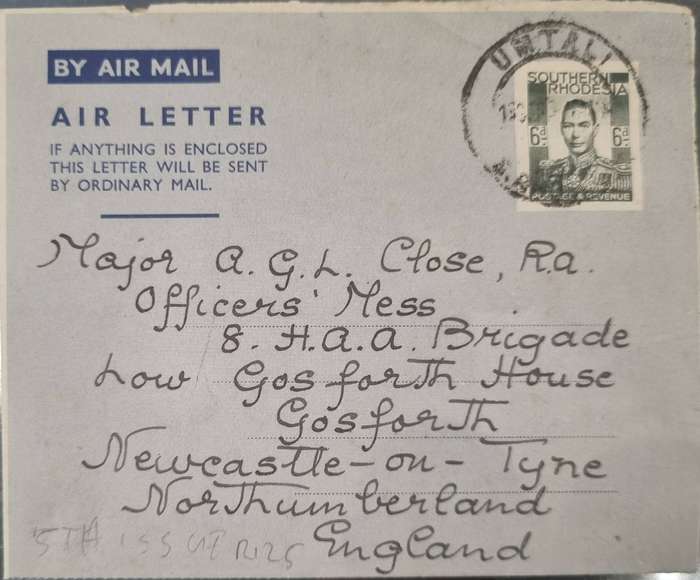 BY AIR MAIL
AIR LETTER
IF ANYTHING IS ENCLOSED
THIS LETTER WILL BE SENT
BY ORDINARY MAIL.
UMTALI
SOUTHERN
RHODESIA
6d 6d
POSTAGE & REVENUE
Major A.G.L. Close, R.a.
Officers' Mess
8. H.A.A. Brigade
Low Gosforth House
Gosforth
Newcastle-on-Tyne
Northumberland
England
5TH ISSUE R125